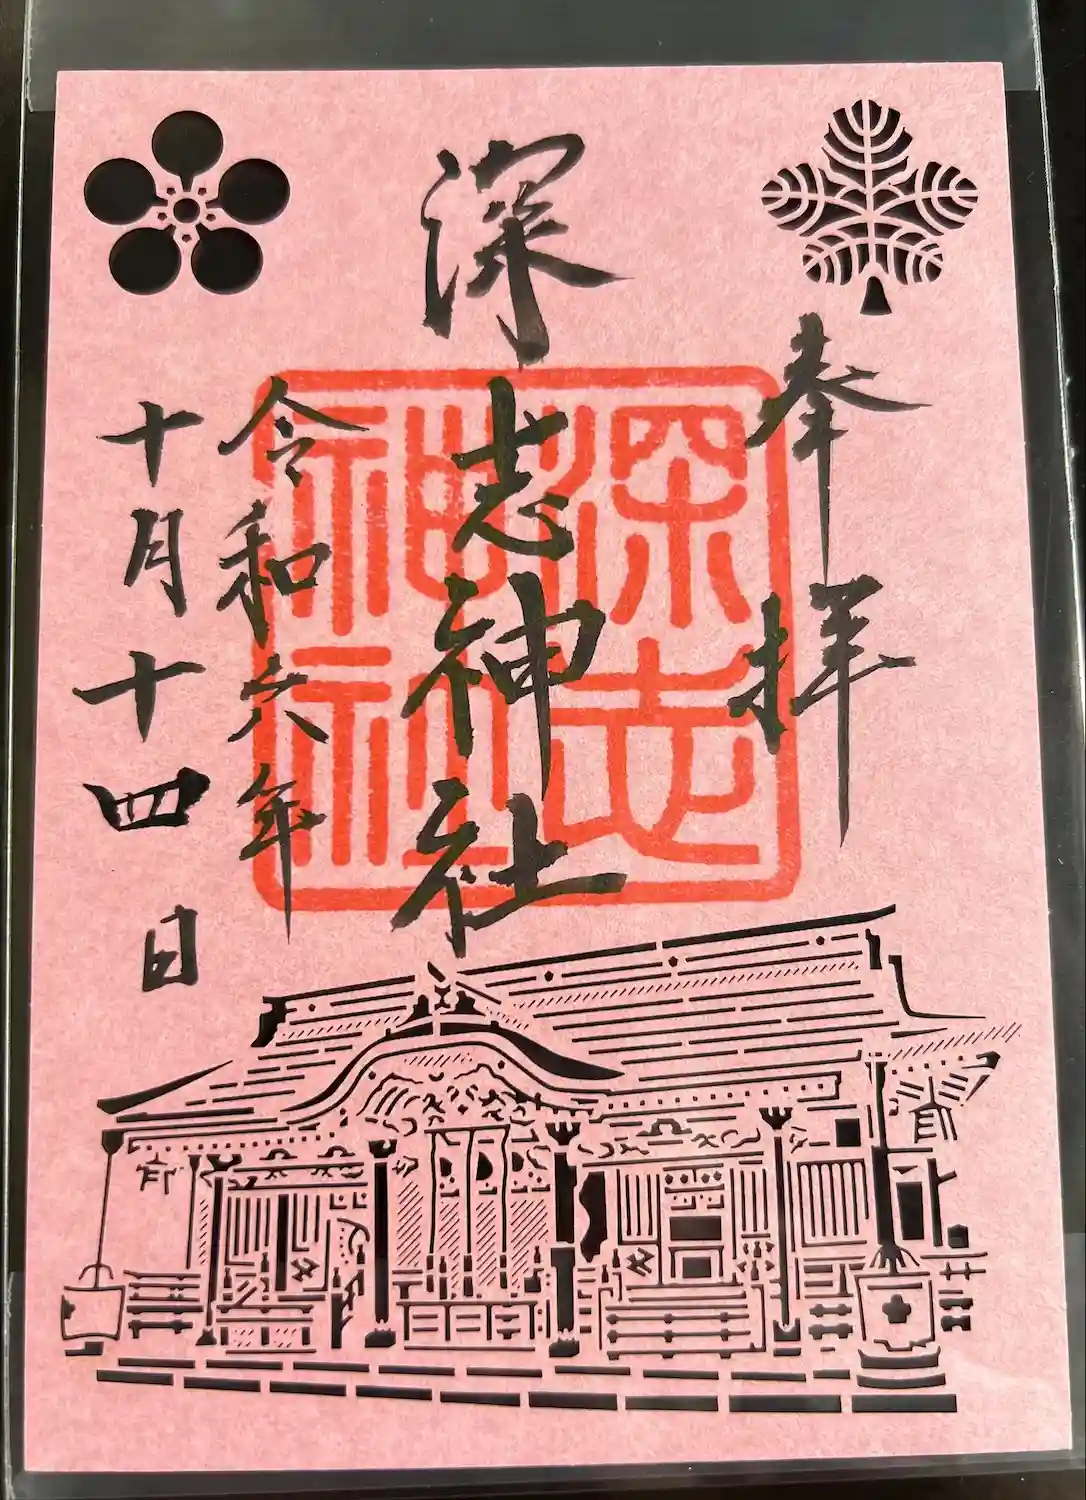 奉拝
深志神社
深志神社
令和六年
十月十四日